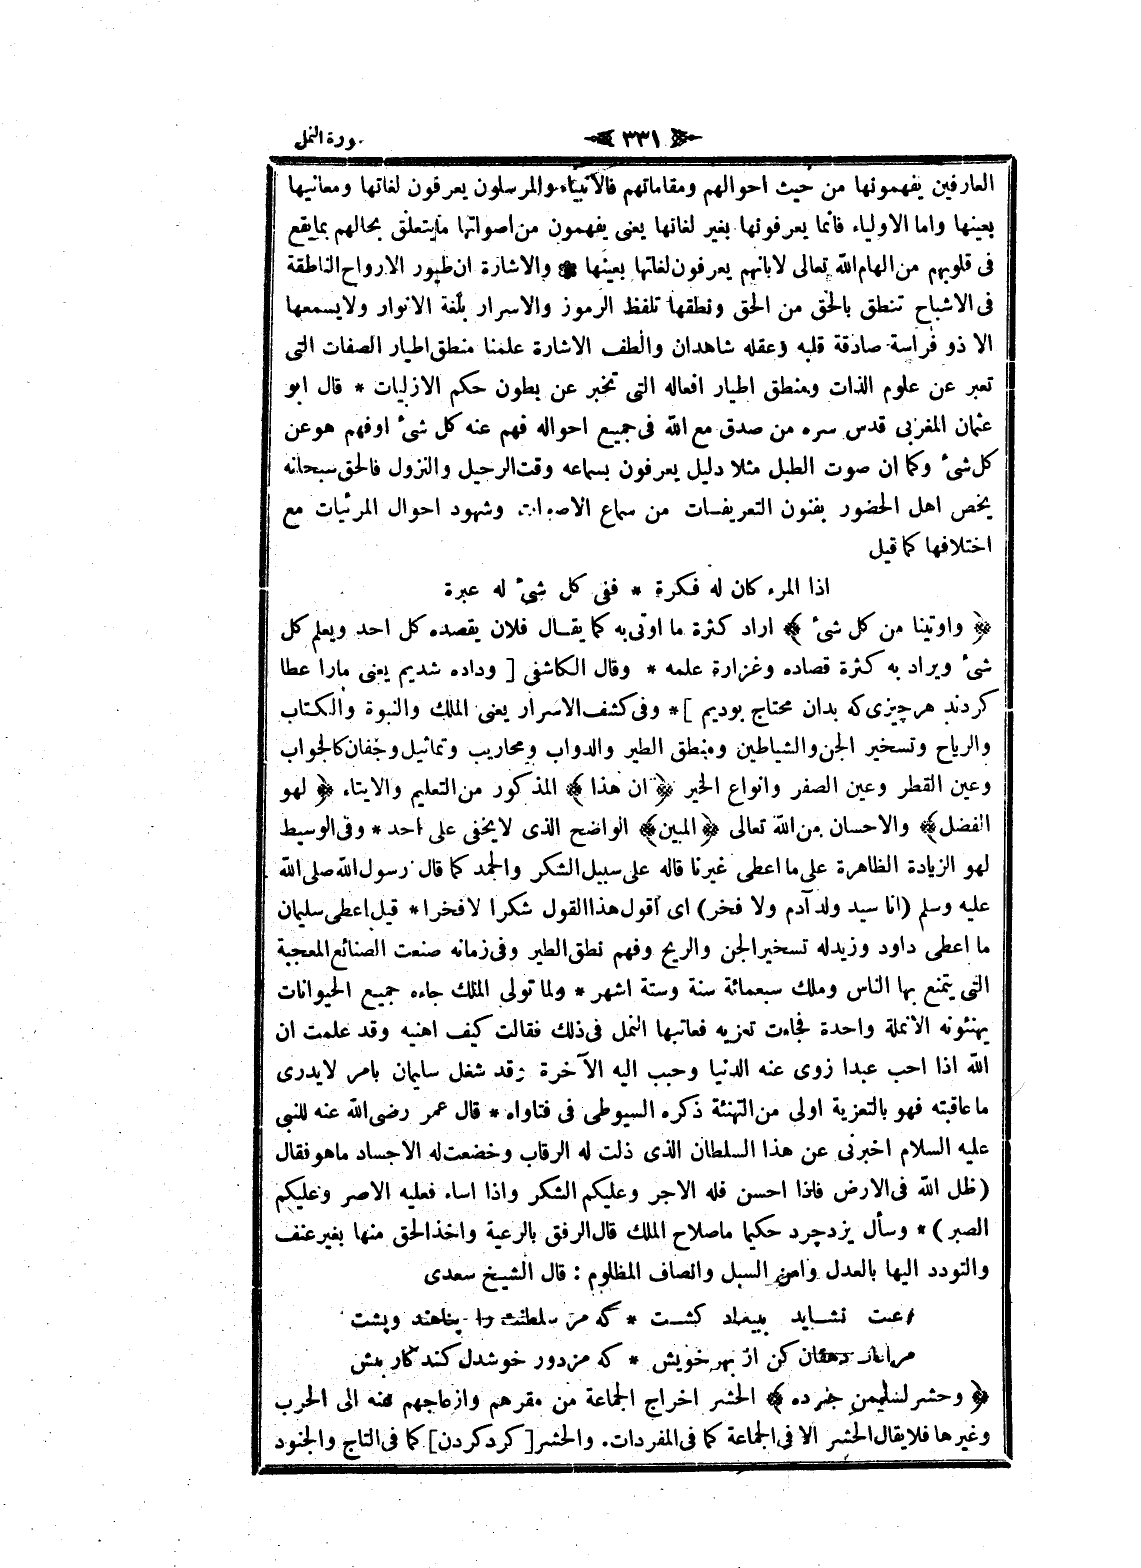 سورة النمل
٣٣١
العارفين يفهمونها من حيث احوالهم ومقاماتهم فالأنبياء والمرسلون يعرفون لغاتها ومعانيها
بعينها واما الاولياء فأنما يعرفونها بغير لغاتها يعنى يفهمون من اصواتها ما يتعلق بحالهم بما يقع
فى قلوبهم من الهام الله تعالى لا بانهم يعرفون لغاتها بعينها * والاشارة ان طيور الارواح الناطقة
فى الاشباح تنطق بالحق من الحق ونطقها تلفظ الرموز والاسرار بلغة الانوار ولا يسمعها
الا ذو فراسة صادقة قلبه وعقله شاهدان والطف الاشارة علمنا منطق اطيار الصفات التى
تعبر عن علوم الذات ومنطق اطيار افعاله التى تخبر عن بطون حكم الازليات * قال ابو
عثمان المغربى قدس سره من صدق مع الله فى جميع احواله فهم عنه كل شئ اوفهم هو عن
كل شئ وكما ان صوت الطبل مثلا دليل يعرفون بسماعه وقت الرحيل والنزول فالحق سبحانه
يخص اهل الحضور بفنون التعريفات من سماع الاصوات وشهود احوال المرئيات مع
اختلافها كما قيل
اذا المرء كان له فكرة * ففى كل شئ له عبرة
﴿ واوتينا من كل شئ ﴾ اراد كثرة ما اوتى به كما يقال فلان يقصده كل احد ويعلم كل
شئ ويراد به كثرة قصاده وغزارة علمه * وقال الكاشفى [ وداده شديم يعنى مارا عطا
كردند هر چيزى كه بدان محتاج بوديم ] * وفى كشف الاسرار يعنى الملك والنبوة والكتاب
والرياح وتسخير الجن والشياطين ومنطق الطير والدواب ومحاريب وتماثيل وجفان كالجواب
وعين القطر وعين الصفر وانواع الخير ﴿ ان هذا ﴾ المذكور من التعليم والايتاء ﴿ لهو
الفضل ﴾ والاحسان من الله تعالى ﴿ المبين ﴾ الواضح الذى لا يخفى على احد * وفى الوسيط
لهو الزيادة الظاهرة على ما اعطى غيرنا قاله على سبيل الشكر والحمد كما قال رسول الله صلى الله
عليه وسلم (انا سيد ولد آدم ولا فخر) اى اقول هذا القول شكرا لا فخرا * قيل اعطى سليمان
ما اعطى داود وزيد له تسخير الجن والريح وفهم نطق الطير وفى زمانه صنعت الصنائع المعجبة
التى يتمتع بها الناس وملك سبعمائة سنة وستة اشهر * ولما تولى الملك جاءه جميع الحيوانات
يهنئونه الا نملة واحدة فجاءت تعزيه فعاتبها النمل فى ذلك فقالت كيف اهنيه وقد علمت ان
الله اذا احب عبدا زوى عنه الدنيا وحبب اليه الآخرة وقد شغل سليمان بامر لا يدرى
ما عاقبته فهو بالتعزية اولى من التهنئة ذكره السيوطى فى فتاواه * قال عمر رضى الله عنه للنبى
عليه السلام اخبرنى عن هذا السلطان الذى ذلت له الرقاب وخضعت له الاجساد ما هو فقال
(ظل الله فى الارض فاذا احسن فله الاجر وعليكم الشكر واذا اساء فعليه الاصر وعليكم
الصبر ) * وسأل يزدجرد حكيما ما صلاح الملك قال الرفق بالرعية واخذ الحق منها بغير عنف
والتودد اليها بالعدل وامن السبل وانصاف المظلوم : قال الشيخ سعدى
رعيت نشايد ببيداد كشت * كه مر سلطنت را پناهند وپشت
مراعات دهقان كن از بهر خويش * كه مزدور خوشدل كند كار بيش
﴿ وحشر لسليمن جنوده ﴾ الحشر اخراج الجماعة من مقرهم وازعاجهم عنه الى الحرب
وغيرها فلا يقال الحشر الا فى الجماعة كما فى المفردات. والحشر [ كرد كردن ] كما فى التاج والجنود